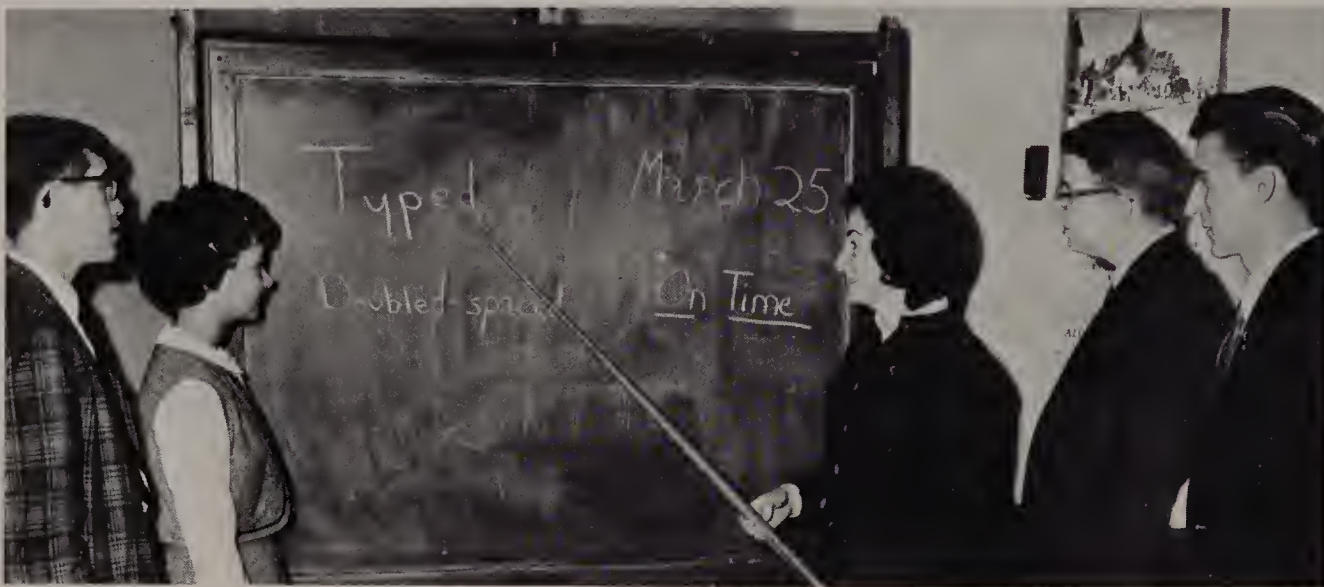 Typed March 25
Doubled-spaced On Time